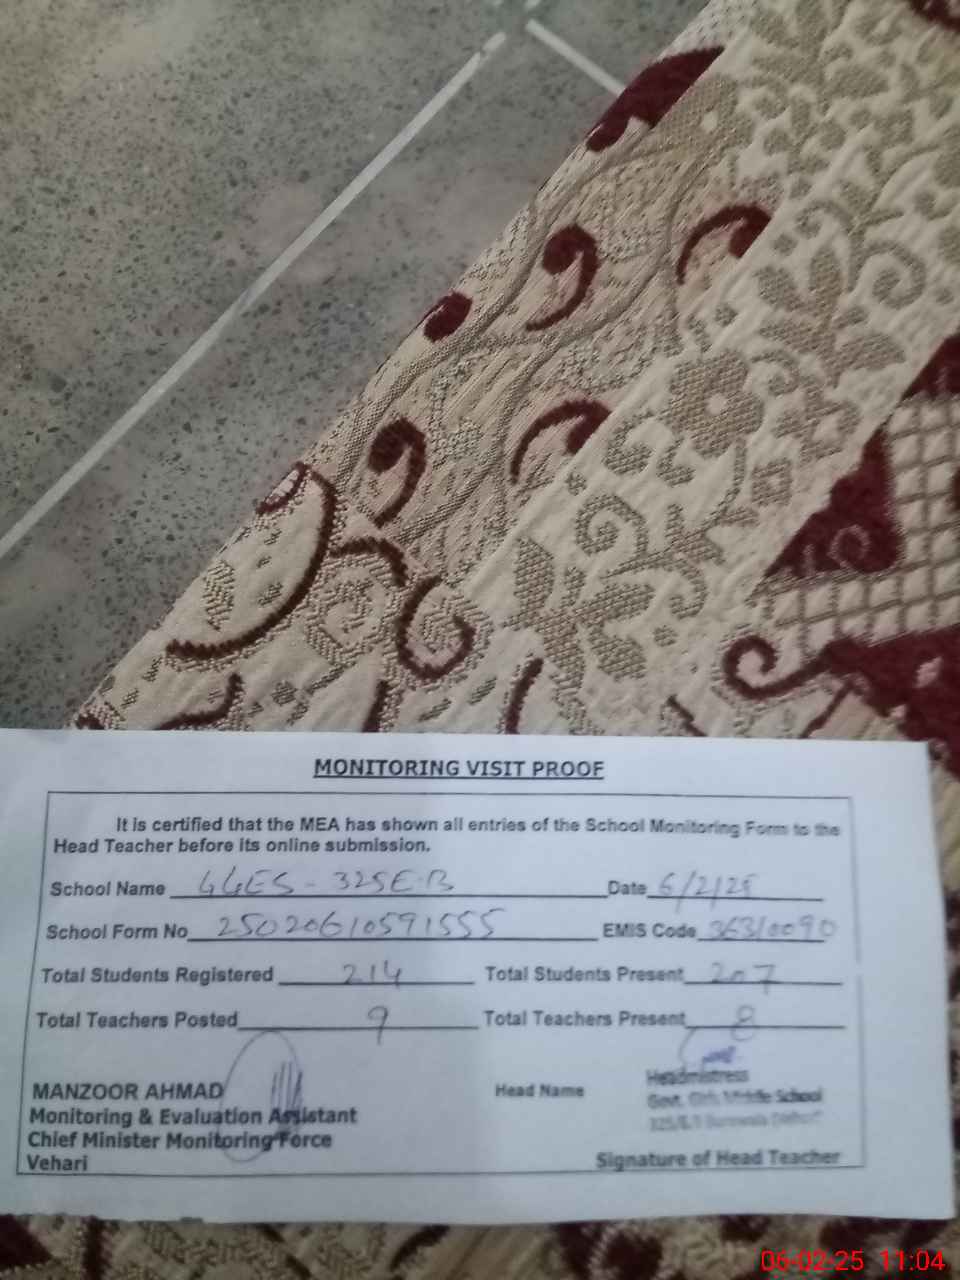 MONITORING VISIT PROOF
It is certified that the MEA has shown all entries of the School Monitoring Form to the
Head Teacher before its online submission.
School Name GGES - 325E.B Date 6/2/25
School Form No 25020610591555 EMIS Code 36310090
Total Students Registered 214 Total Students Present 207
Total Teachers Posted 9 Total Teachers Present 8
MANZOOR AHMAD Head Name Headmistress
Monitoring & Evaluation Assistant Govt. Girls Middle School
Chief Minister Monitoring Force 325/E.B Burewala
Vehari Signature of Head Teacher
06-02-25 11:04